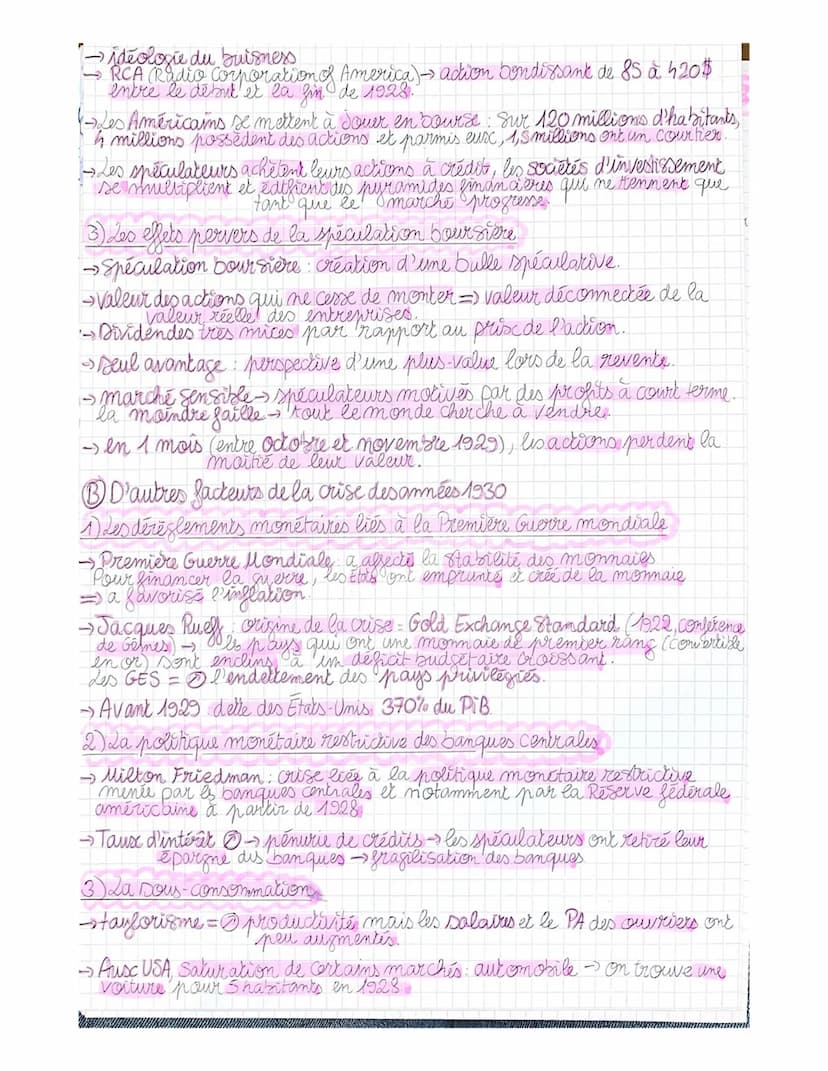 → idéologie du buisness
→ RCA (Radio Corporation of America) → action bondissant de 85 à 420$
entre le début et la fin de 1928.
→ Les Américains se mettent à jouer en bourse : Sur 120 millions d'habitants,
4 millions possèdent des actions et parmis eux, 1,5 millions ont un courtier.
→ Les spéculateurs achètent leurs actions à crédit, les sociétés d'investissement
se multiplient et édifient des pyramides financières qui ne tiennent que
tant que le marché progresse.
3) Les effets pervers de la spéculation boursière
→ Spéculation boursière : création d'une bulle spéculative.
→ valeur des actions qui ne cesse de monter => valeur déconnectée de la
valeur réelle des entreprises.
→ Dividendes très mices par rapport au prix de l'action.
→ seul avantage : perspective d'une plus-value lors de la revente.
→ marché sensible → spéculateurs motivés par des profits à court terme.
la moindre faille → tout le monde cherche à vendre.
→ en 1 mois (entre octobre et novembre 1929), les actions perdent la
moitié de leur valeur.
Ⓑ D'autres facteurs de la crise des années 1930
1) Les dérèglements monétaires liés à la Première Guerre mondiale
→ Première Guerre Mondiale : a affecté la stabilité des monnaies
Pour financer la guerre, les États ont emprunté et créé de la monnaie
=> a favorisé l'inflation.
→ Jacques Rueff : origine de la crise = Gold Exchange Standard (1922, conférence
de Gênes) → les pays qui ont une monnaie de premier rang (convertible
en or) sont enclins à un déficit budgétaire croissant.
Les GES = ↗ l'endettement des pays privilégiés.
→ Avant 1929 dette des États-Unis 370% du PiB
2) La politique monétaire restrictive des banques centrales
→ Milton Friedman : crise liée à la politique monétaire restrictive
menée par les banques centrales et notamment par la Réserve fédérale
américaine à partir de 1928
→ Taux d'intérêt ↗ → pénurie de crédits → les spéculateurs ont retiré leur
épargne des banques → fragilisation des banques
3) La sous-consommation
→ taylorisme = ↗ productivité mais les salaires et le PA des ouvriers ont
peu augmentés.
→ Aux USA, saturation de certains marchés : automobile → on trouve une
voiture pour 5 habitants en 1928